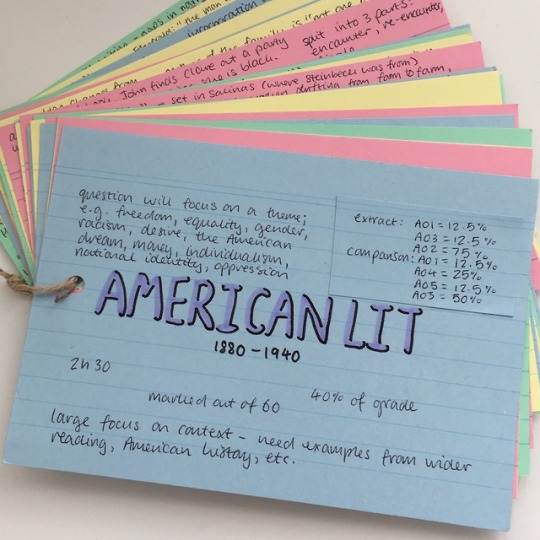 "the man
incorporation
of the family is that one
split into 3 parts:
John finds Clare at a party
encounter, re-encounter,
one is black.
set in Salinas (where Steinbeck was from)
drifting from farm to farm,
question will focus on a theme;
e.g. freedom, equality, gender,
racism, desire, the American
dream, money, individualism,
national identity, oppression
extract: AO1 = 12.5%
AO3 = 12.5%
AO2 = 75%
comparison: AO1 = 12.5%
AO4 = 25%
AO5 = 12.5%
AO3 = 50%
AMERICAN LIT
1880-1940
2h 30
marked out of 60
40% of grade
large focus on context - need examples from wider
reading, American history, etc.